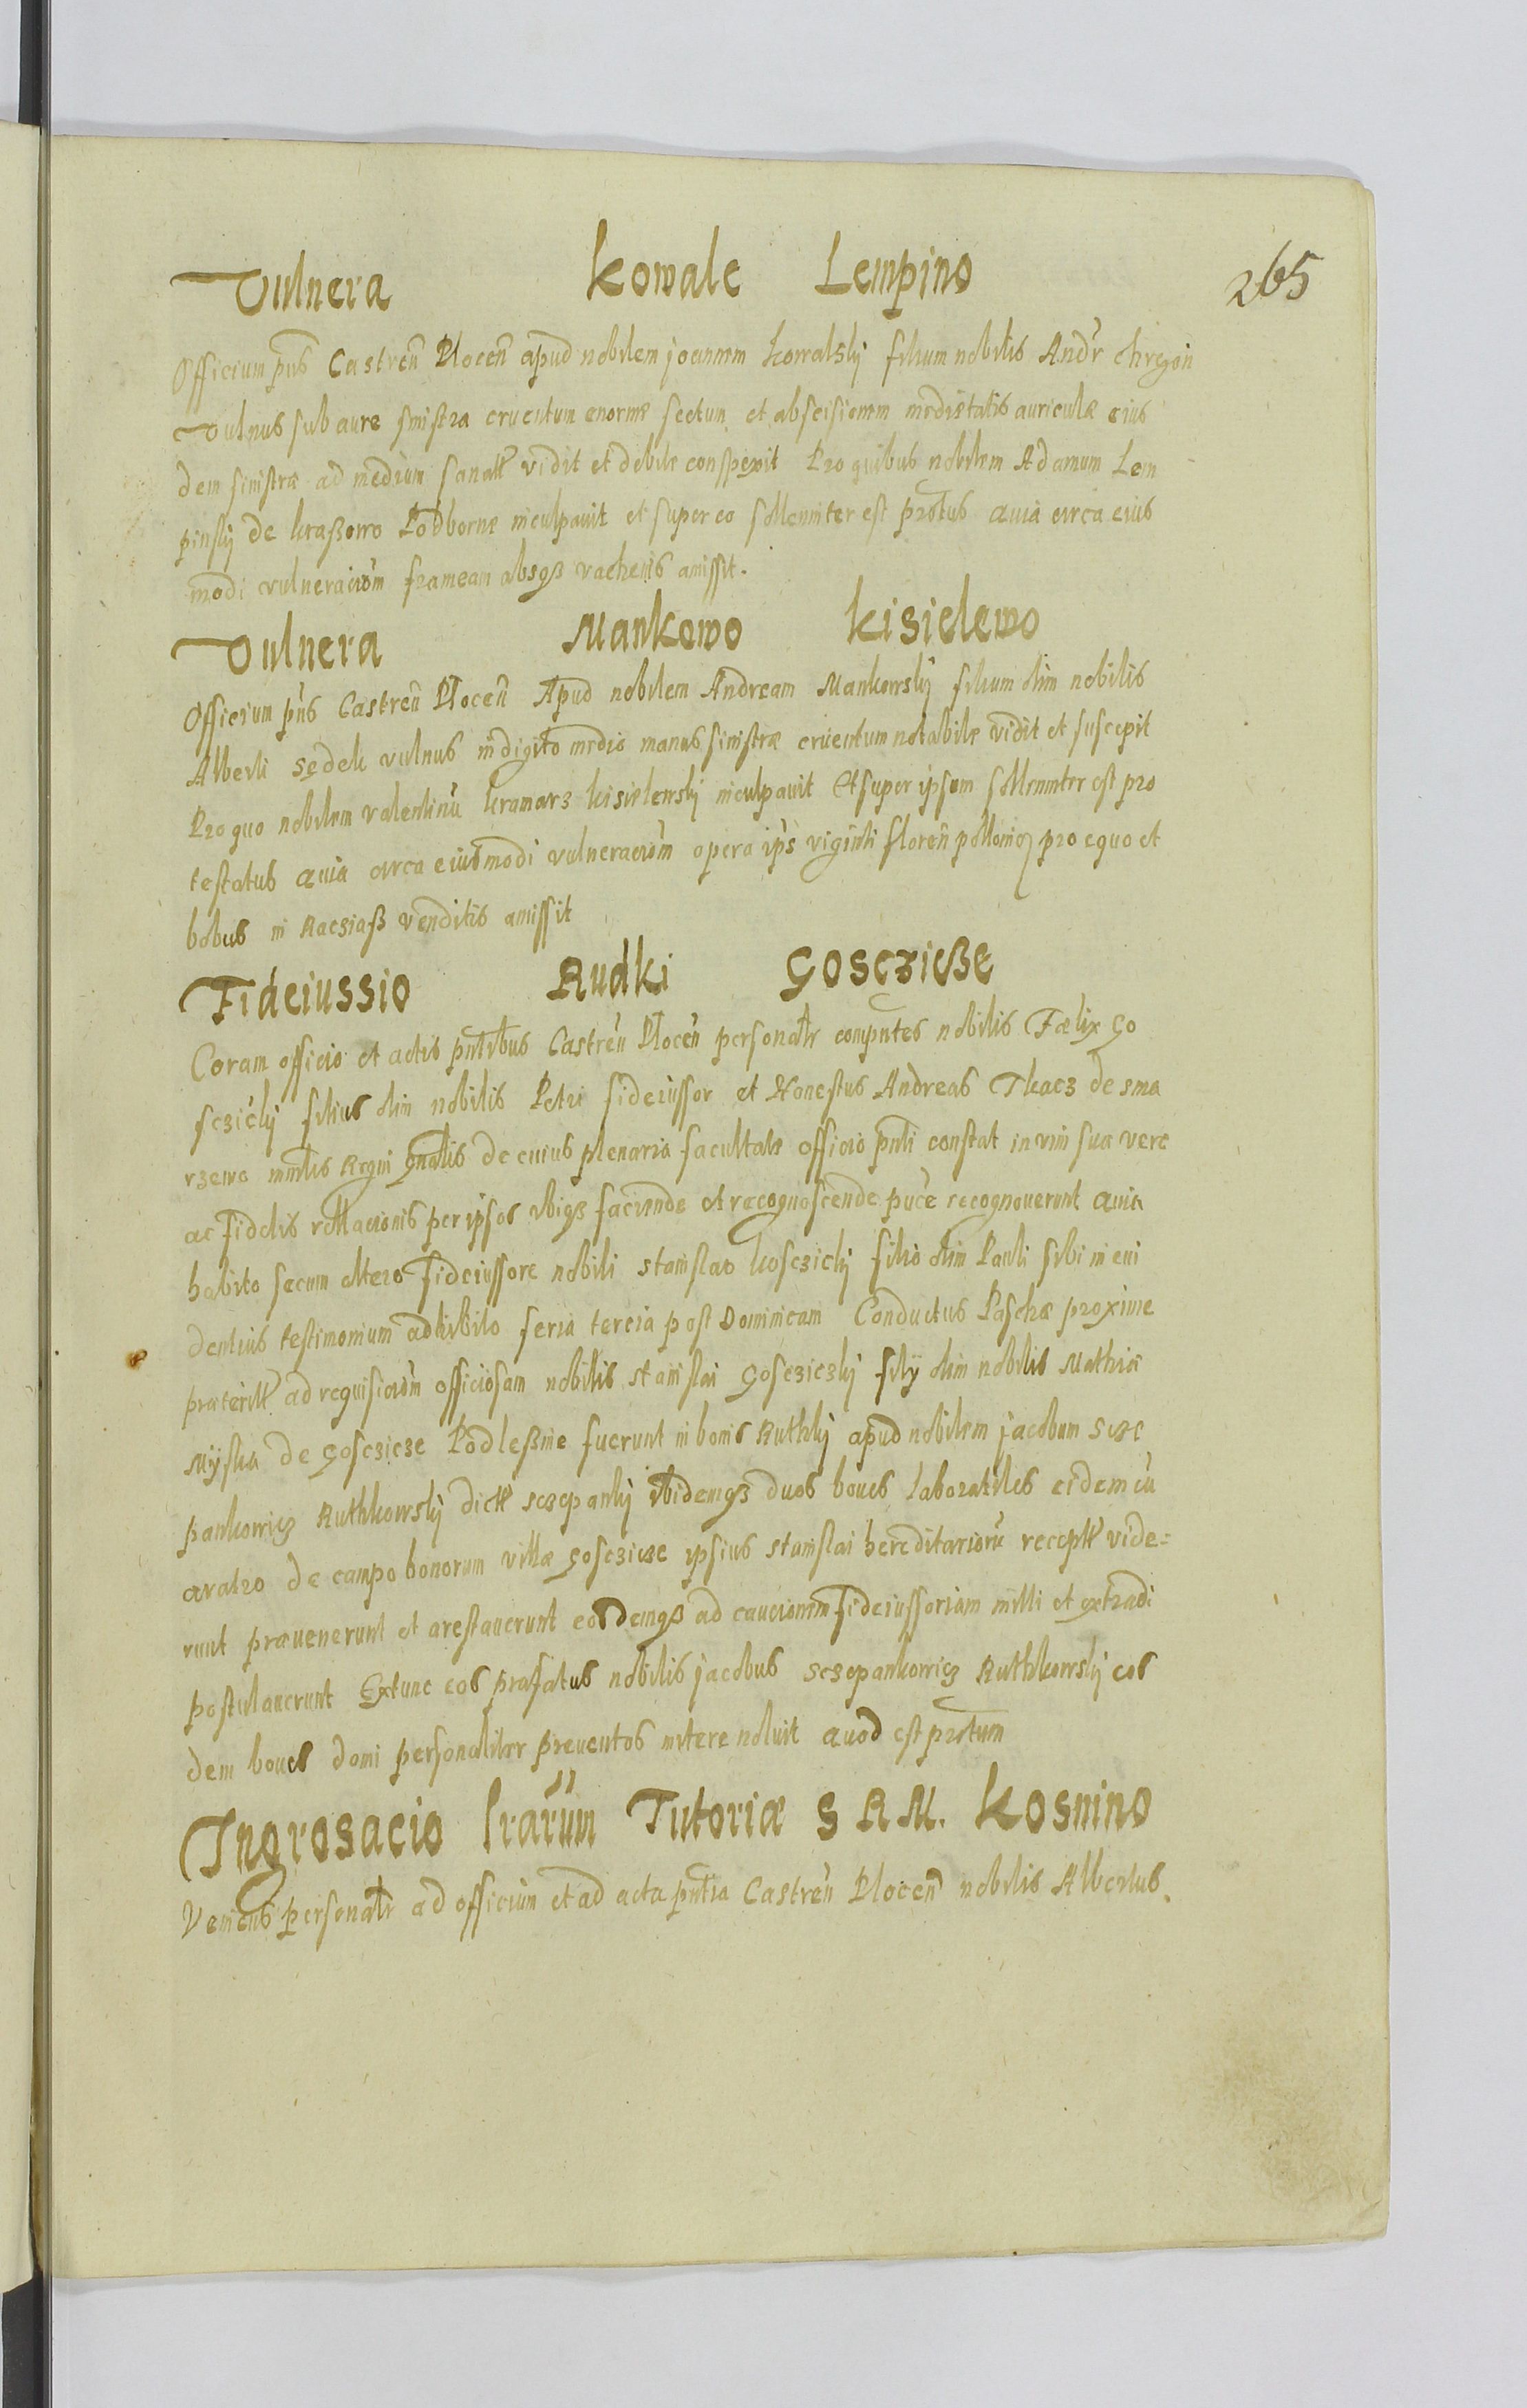 Vulnera Kowale Lempino
265
Officium pñs Castreñ Ploceñ apud nobilem joannem Kowalskij filium nobilis Andr
Vulnus sub aure sinistra cruentum enorme sectum et abscisionem medietatis auriculæ eius
dem sinistræ ad medium vidit et debite conspexit Pro quibus nobilem Adamum Lem
pinskij de Kraßowo Podborne inculpavit et super eo sollenniter est prõtus quia circa eius
modi vulneraciõm frameam absqß vachenis amissit.
Vulnera Mankowo Kisielewo
Officium pñs Castreñ Ploceñ Apud nobilem Andream Mankowskij filium olim nobilis
Alberti Sędek vulnus in digito medio manus sinistræ cruentum notabile vidit et suscepit
Pro quo nobilem valentinũ kramarz kisielewskij inculpavit Et super ipsum sollenniter est pro
testatus quia circa eiusmodi vulneraciõm opera ip̃s viginti floreñ pollonicz pro equo et
bobus in Racziaß venditis amissit
Fideiussio Rudki Gosczicße
Coram officio et actis pñtibus Castreñ Ploceñ personalr comp̃ntes nobilis Fælix Go
sczičkij filius olim nobilis Petri fideiussor et Honestus Andreas Tkacz de Sma
rzewo minrlis Regni gñalis de cuius plenaria facultate officio pñti constat in vim suæ veræ
ac fidelis rellacionis per ipsos vbiqß faciende et recognoscende puce recognoverunt quia
habito secum altero fideiussore nobili stanislao kosczickij filio olim Pauli sibi in evi
dentius testimonium adhibito feria tercia post Dominicam Conductus Paschæ proxime
præterit ad requisiciõm officiosam nobilis stanislai Goscziczkij filij olim nobilis Mathiæ
Mijska de Gosczicze Podleßnie fuerunt in bonis Ruthkij apud nobilem jacobum Scze
pankowicz Ruthkowskij dict sczepankij ibidemqß duos boves laboratiles eidem cũ
aratro de campo bonorum villæ Gosczicze ipsius stanislai hereditariorũ recept vide=
runt prævenerunt et arestaverunt eosdemqß ad caucionem fideiussoriam mitti et extradi
postulaverunt Extunc eos præfatus nobilis jacobus sczepankowicz Ruthkowskij eos
dem boves domi personaliter preventos mitere noluit quod est prõtum
Ingrosacio lrarũm Tutoriæ S R M. Kosnino
Veniens personalr ad officium et ad acta pñtia Castreñ Ploceñ nobilis Albertus